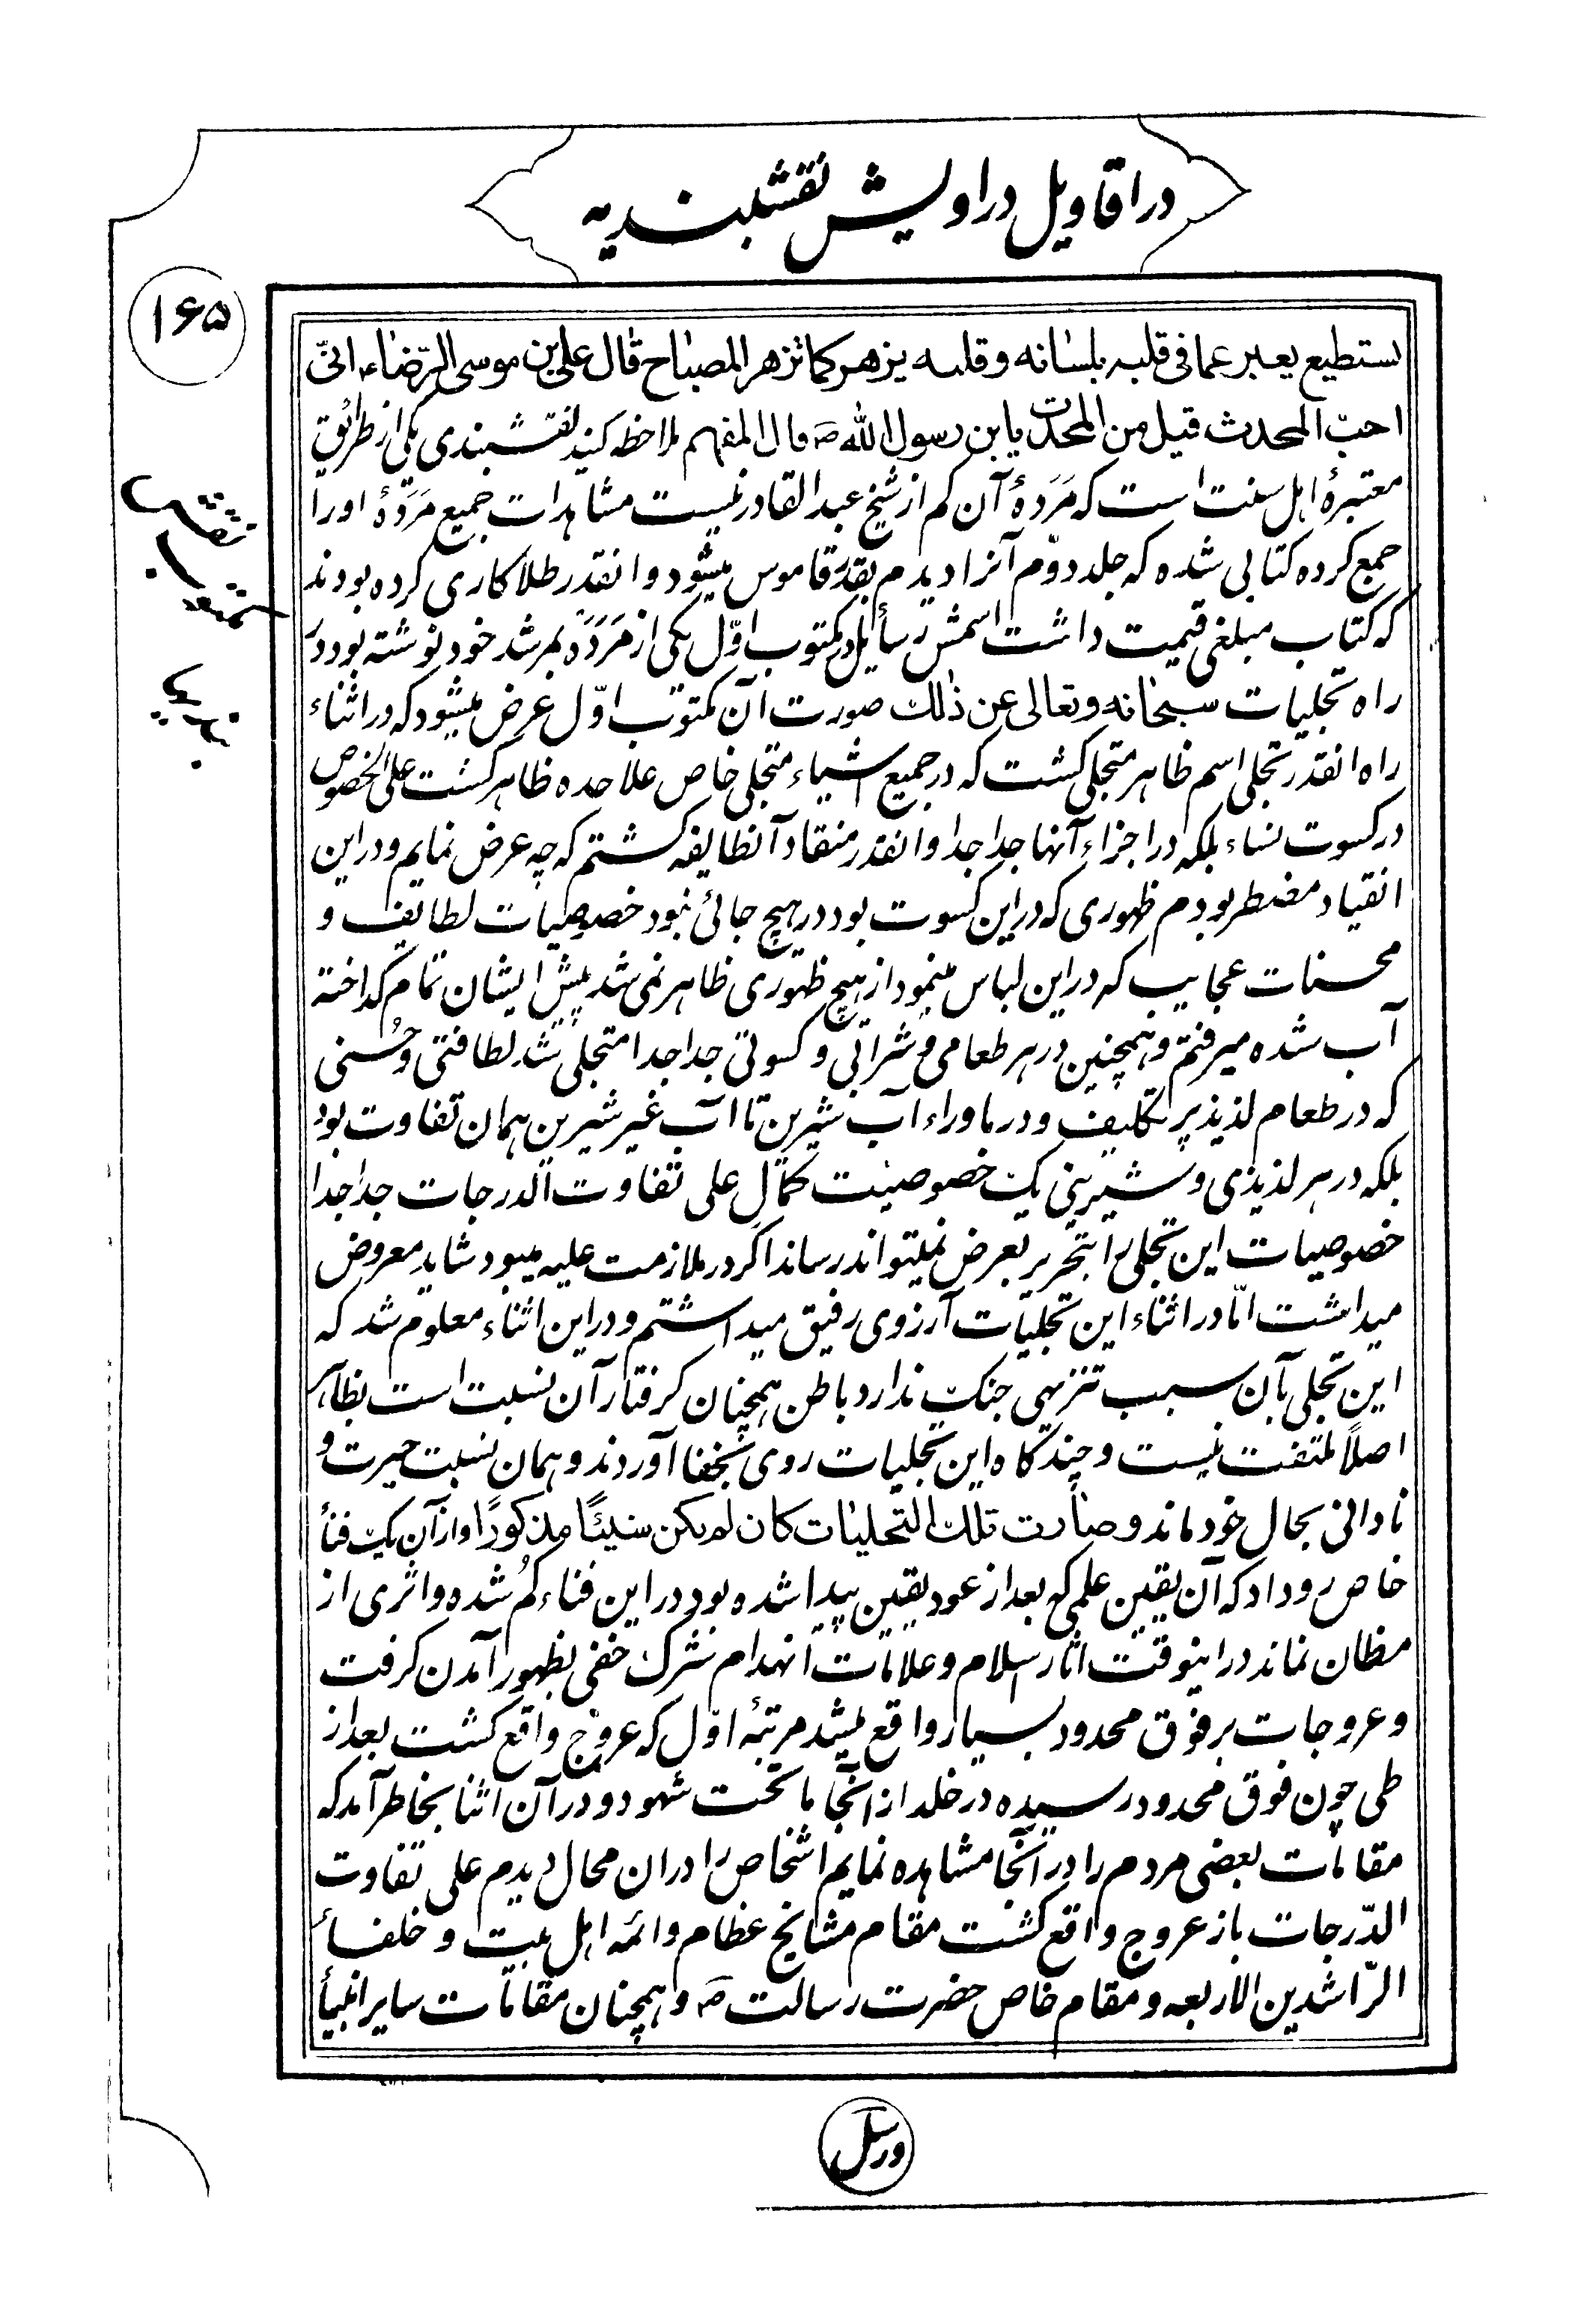 در اقاویل دراویش نقشبندیه
۱۶۵
یستطیع یعبر عما فی قلبه بلسانه و قلبه یزهر کما تزهر المصباح قال علی بن موسی الرضاء انّی
احبّ المحدث قیل من المحدث یابن رسول الله ص قال المفهم ملاحظه کنید نقشبندی یکی از طرائق
معتبرهٔ اهل سنت است که مَرَدهٔ آن کم از شیخ عبدالقادر نیست مشاهدات جمیع مَرَدهٔ او را
جمع کرده کتابی شده که جلد دوّم آنرا دیدم بقدر قاموس میشود و انقدر طلاکاری کرده بودند
که کتاب مبلغی قیمت داشت اسمش رسأیل در مکتوب اوّل یکی از مَرَدَه بمرشد خود نوشته بود در
راه تجلیات سبحانه و تعالی عن ذلك صورت آن مکتوب اوّل عرض میشود که در اثناء
راه انقدر تجلی اسم ظاهر متجلی کشت که در جمیع اشیاء متجلی خاص علاحده ظاهر کشت علی الخصوص
در کسوت نساء بلکه در اجزاء آنها جدا جدا و انقدر منقاد آنطایفه کشتم که چه عرض نمایم و در این
انقیاد مضطر بودم ظهوری که در این کسوت بود در هیچ جائی نبود خصوصیات لطایف و
محسنات عجایب که در این لباس مینمود از هیچ ظهوری ظاهر نمی شد پیش ایشان تمام کداخته
آب شده میرفتم و همچنین در هر طعامی و شرابی و کسوتی جدا جدا متجلی شد لطافتی و حُسنی
که در طعام لذیذ پر تکلیف و در ماوراء آب شیرین تا آب غیر شیرین همان تفاوت بود
بلکه در هر لذیذی و شیرینی یک خصوصیت کمال علی تفاوت الدرجات جدا جدا
خصوصیات این تجلی را بتحریر بعرض نمیتواند رساند اکر در ملازمت علیه میبود شاید معروض
میداشت امّا در اثناء این تجلیات آرزوی رفیق میداشتم و در این اثناء معلوم شد که
این تجلی بآن سبب تنزیهی جنک ندارد باطن همچنان کرفتار آن نسبت است بظاهر
اصلاً ملتفت نیست و چند کاه این تجلیات روی بخفا آوردند و همان نسبت حیرت و
نادانی بحال خود ماند و صارت تلك التجلیات کان لم یکن شیئًا مذکورًا و از آن یک فنأ
خاص رو داد که آن یقین علمی که بعد از عود یقین پیدا شده بود در این فناء کُم شده و اثری از
مظان نماند در اینوقت اثار اسلام و علامات انهدام شرک خفی بظهور آمدن کرفت
و عروجات بر فوق محدود بسیار واقع میشد مرتبهٔ اوّل که عروج واقع کشت بعد از
طی چون فوق محدود رسیده در خلد از آنجا ما تحت شهود و در آن اثنا بخاطر آمد که
مقامات بعضی مردم را در آنجا مشاهده نمایم اشخاص را در ان محال دیدم علی تفاوت
الدّرجات باز عروج واقع کشت مقام مشایخ عظام و ائمه اهل بیت و خلفأ
الرّاشدین الاربعه و مقام خاص حضرت رسالت ص و همچنان مقامات سایر انبیأ
و رسل